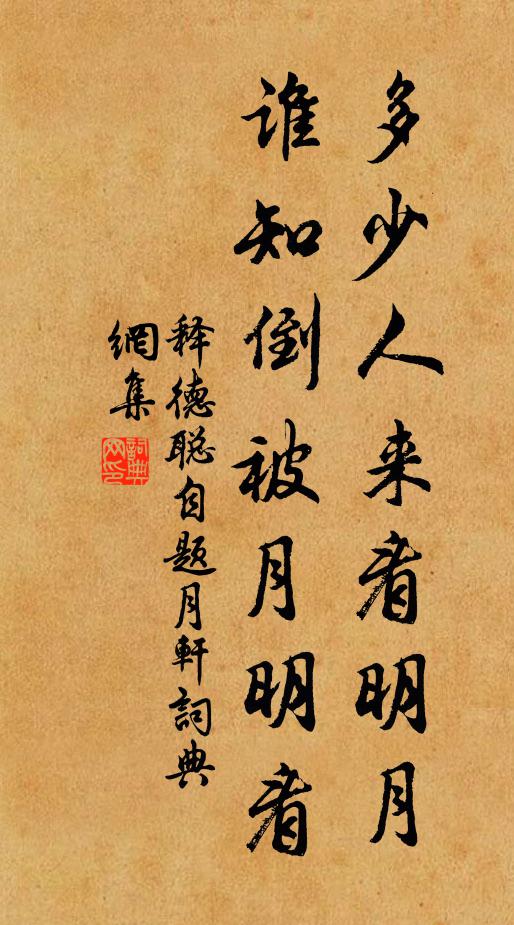 多少人来看明月
谁知倒被月明看
释德聪自题月軒詞典
網集
詞典
网印